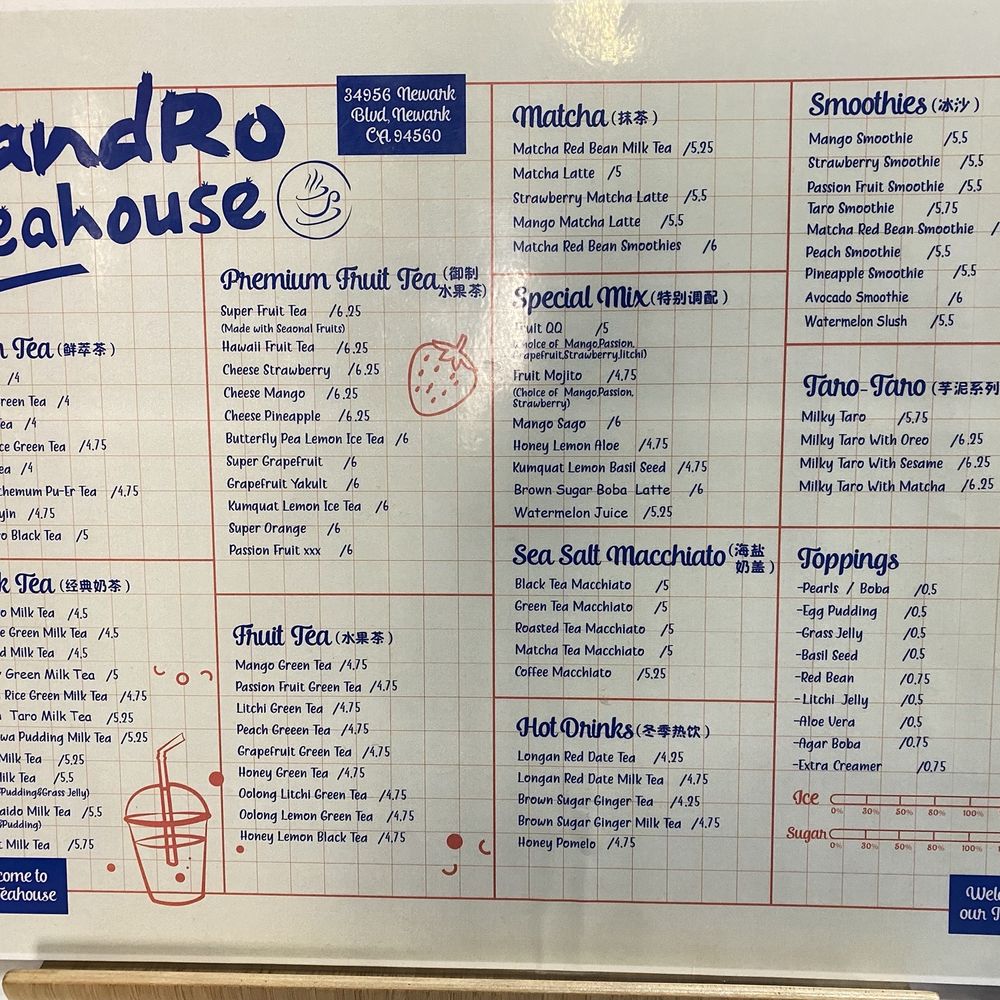 andRo
eahouse
34956 Newark
Blvd, Newark
CA 94560
Tea (鲜萃茶)
/4
reen Tea /4
Tea /4
ce Green Tea /4.75
ea /4
themum Pu-Er Tea /4.75
yin /4.75
o Black Tea /5
k Tea (经典奶茶)
o Milk Tea /4.5
e Green Milk Tea /4.5
d Milk Tea /4.5
Green Milk Tea /5
Rice Green Milk Tea /4.75
Taro Milk Tea /5.25
wa Pudding Milk Tea /5.25
Milk Tea /5.25
ilk Tea /5.5
Pudding&Grass Jelly)
aido Milk Tea /5.5
&Pudding)
t Milk Tea /5.75
come to
Teahouse
Premium Fruit Tea (御制
水果茶)
Super Fruit Tea /6.25
(Made with Seaonal Fruits)
Hawaii Fruit Tea /6.25
Cheese Strawberry /6.25
Cheese Mango /6.25
Cheese Pineapple /6.25
Butterfly Pea Lemon Ice Tea /6
Super Grapefruit /6
Grapefruit Yakult /6
Kumquat Lemon Ice Tea /6
Super Orange /6
Passion Fruit xxx /6
Fruit Tea (水果茶)
Mango Green Tea /4.75
Passion Fruit Green Tea /4.75
Litchi Green Tea /4.75
Peach Greeen Tea /4.75
Grapefruit Green Tea /4.75
Honey Green Tea /4.75
Oolong Litchi Green Tea /4.75
Oolong Lemon Green Tea /4.75
Honey Lemon Black Tea /4.75
Matcha (抹茶)
Matcha Red Bean Milk Tea /5.25
Matcha Latte /5
Strawberry Matcha Latte /5.5
Mango Matcha Latte /5.5
Matcha Red Bean Smoothies /6
Special Mix (特别调配)
Fruit QQ /5
(Choice of Mango,Passion,
Grapefruit,Strawberry,litchi)
Fruit Mojito /4.75
(Choice of Mango,Passion,
Strawberry)
Mango Sago /6
Honey Lemon Aloe /4.75
Kumquat Lemon Basil Seed /4.75
Brown Sugar Boba Latte /6
Watermelon Juice /5.25
Sea Salt Macchiato (海盐
奶盖)
Black Tea Macchiato /5
Green Tea Macchiato /5
Roasted Tea Macchiato /5
Matcha Tea Macchiato /5
Coffee Macchiato /5.25
Hot Drinks (冬季热饮)
Longan Red Date Tea /4.25
Longan Red Date Milk Tea /4.75
Brown Sugar Ginger Tea /4.25
Brown Sugar Ginger Milk Tea /4.75
Honey Pomelo /4.75
Smoothies (冰沙)
Mango Smoothie /5.5
Strawberry Smoothie /5.5
Passion Fruit Smoothie /5.5
Taro Smoothie /5.75
Matcha Red Bean Smoothie /
Peach Smoothie /5.5
Pineapple Smoothie /5.5
Avocado Smoothie /6
Watermelon Slush /5.5
Taro-Taro (芋泥系列
Milky Taro /5.75
Milky Taro With Oreo /6.25
Milky Taro With Sesame /6.25
Milky Taro With Matcha /6.25
Toppings
-Pearls / Boba /0.5
-Egg Pudding /0.5
-Grass Jelly /0.5
-Basil Seed /0.5
-Red Bean /0.75
-Litchi Jelly /0.5
-Aloe Vera /0.5
-Agar Boba /0.75
-Extra Creamer /0.75
Ice
0% 30% 50% 80% 100%
Sugar
0% 30% 50% 80% 100%
Wel
our T